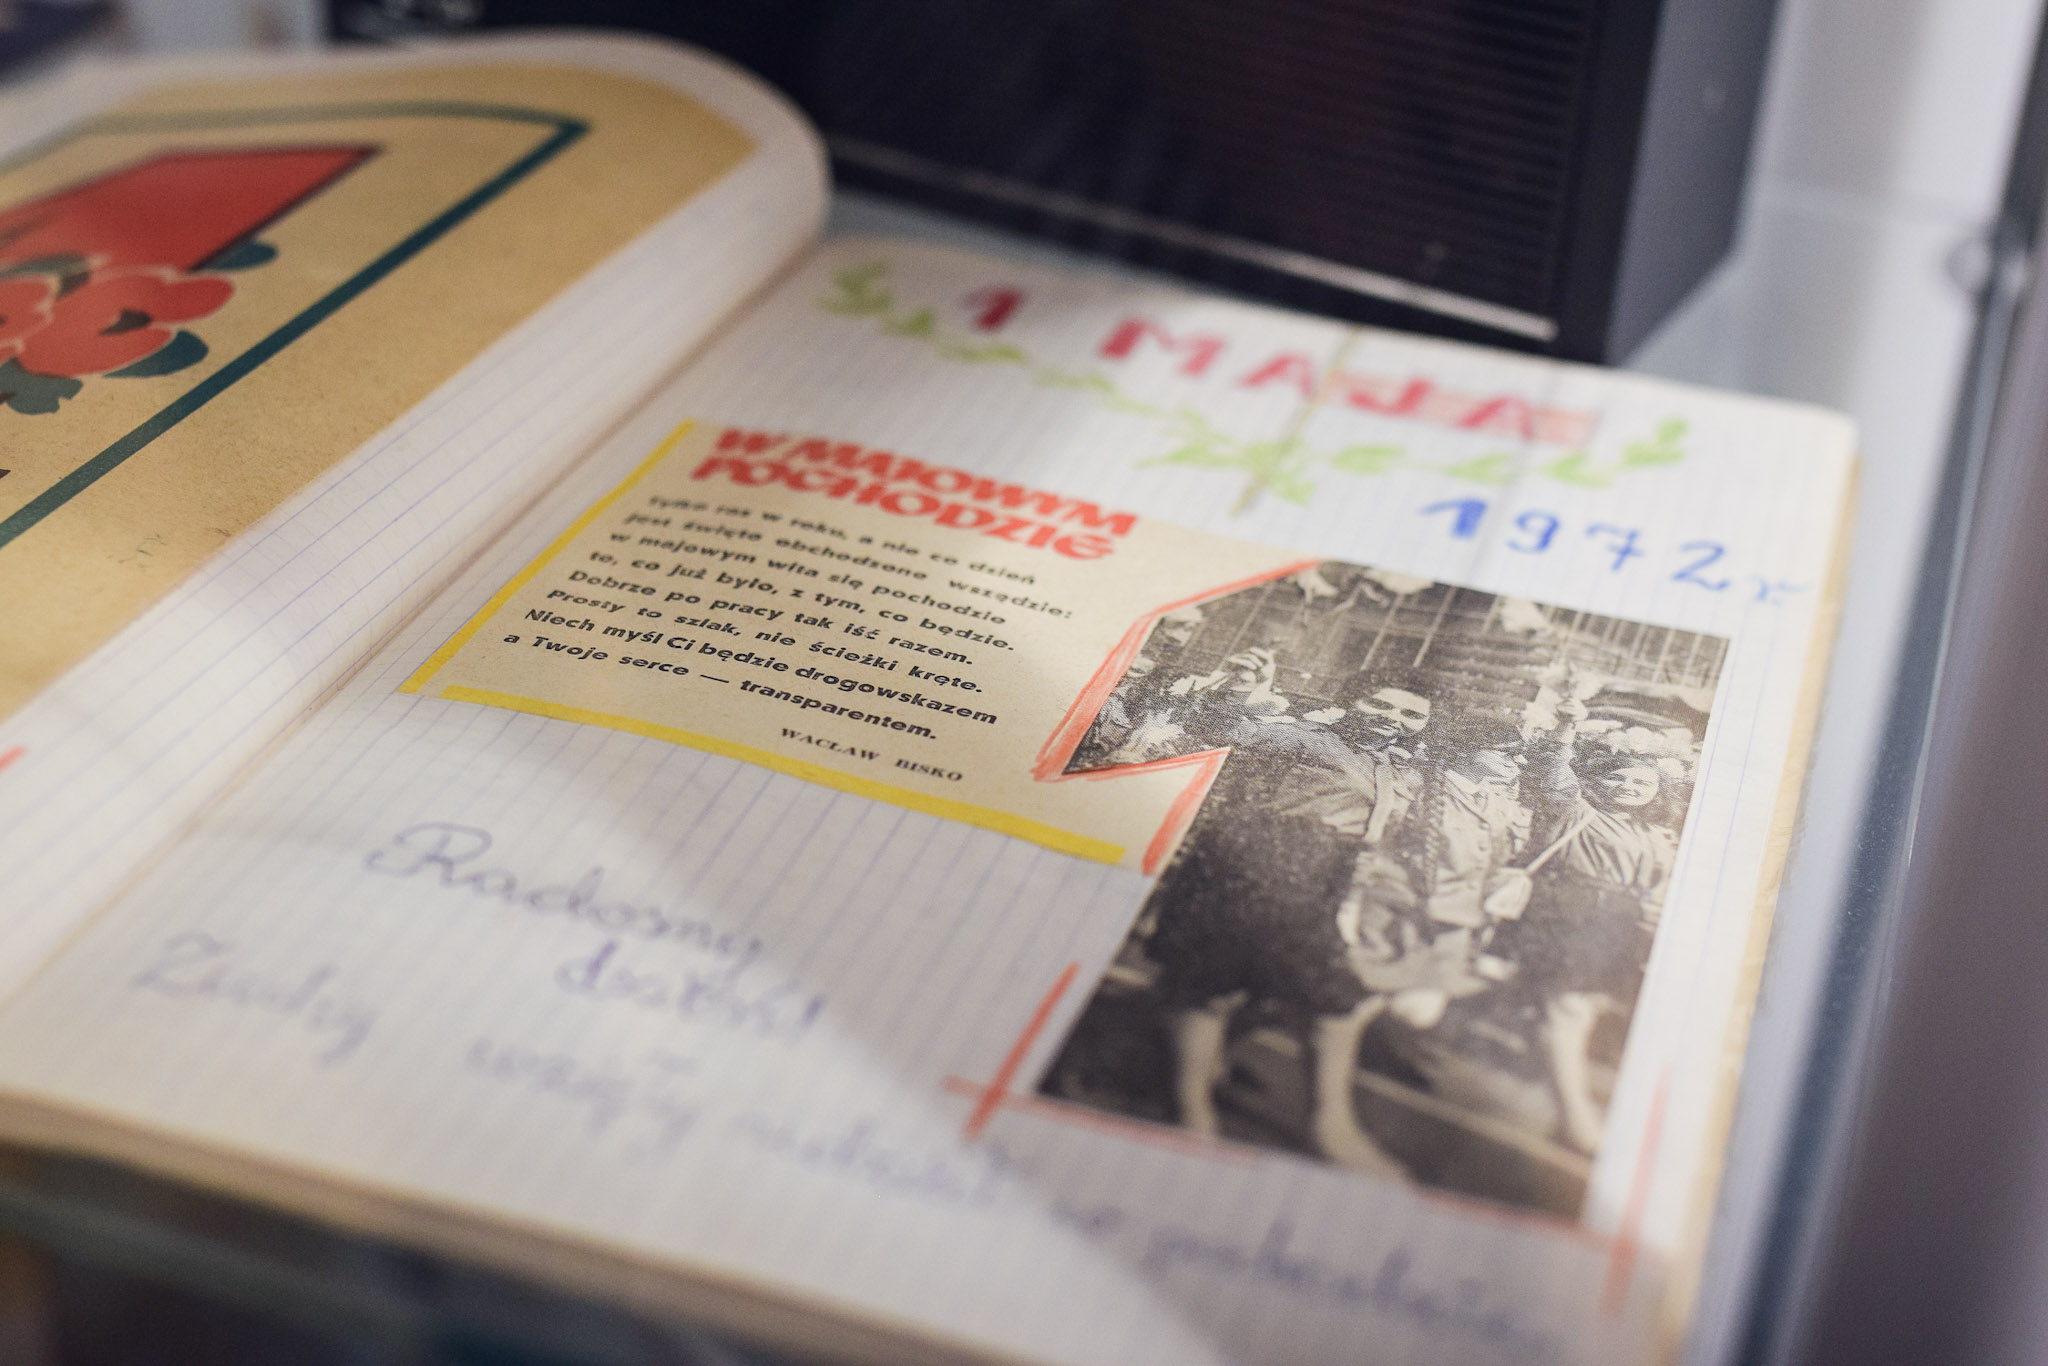 1 MAJA
1972 r.
W MAJOWYM
POCHODZIE
Tylko raz w roku, a nie co dzień
jest święto obchodzone wszędzie:
w majowym wita się pochodzie
to, co już było, z tym, co będzie.
Dobrze po pracy tak iść razem.
Prosty to szlak, nie ścieżki kręte.
Niech myśl Ci będzie drogowskazem
a Twoje serce — transparentem.
WACŁAW BISKO
Radosny
dzień!
Zuchy wzięły udział w pochodzie